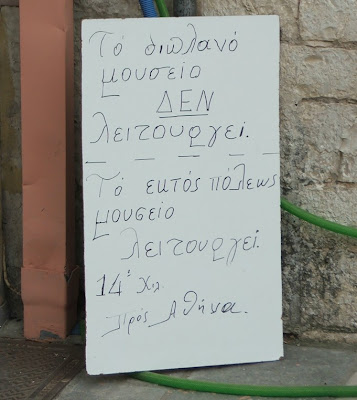 Τό διπλανό
μουσείο
ΔΕΝ
λειτουργεί.
Τό εκτός πόλεως
μουσείο
λειτουργεί.
14 Χιλ.
πρός Αθήνα.